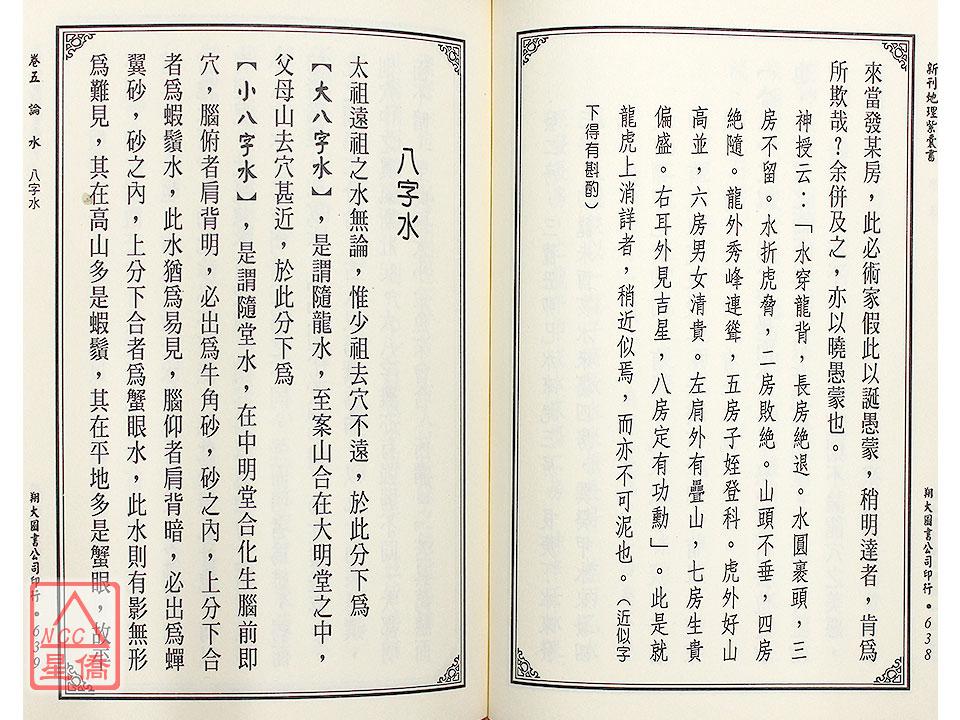 新刊地理紫囊書
來當發某房，此必術家假此以誕愚蒙，稍明達者，肯為
所欺哉？余併及之，亦以曉愚蒙也。
神授云：「水穿龍背，長房絕退。水圓裹頭，三
房不留。水折虎脅，二房敗絕。山頭不垂，四房
絕隨。龍外秀峰連聳，五房子姪登科。虎外好山
高並，六房男女清貴。左肩外有疊山，七房生貴
偏盛。右耳外見吉星，八房定有功勳」。此是就
龍虎上消詳者，稍近似焉，而亦不可泥也。（近似字
下得有斟酌）
翔大圖書公司印行•638
八字水
太祖遠祖之水無論，惟少祖去穴不遠，於此分下為
【大八字水】，是謂隨龍水，至案山合在大明堂之中，
父母山去穴甚近，於此分下為
【小八字水】，是謂隨堂水，在中明堂合化生腦前即
穴，腦俯者肩背明，必出為牛角砂，砂之內，上分下合
者為蝦鬚水，此水猶為易見，腦仰者肩背暗，必出為蟬
翼砂，砂之內，上分下合者為蟹眼水，此水則有影無形
為難見，其在高山多是蝦鬚，其在平地多是蟹眼，故
卷五 論水 八字水
翔大圖書公司印行•639
NCC
星僑